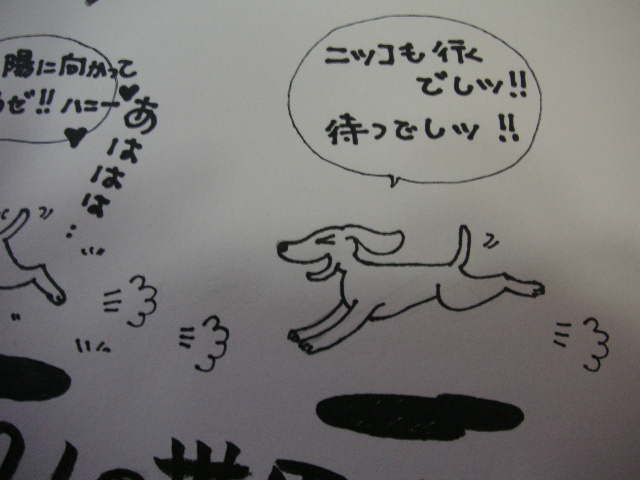 ニッコも行く
でしッ!!
待つでしッ!!
陽に向かって
ゼ!! ハニー♥
あははは…